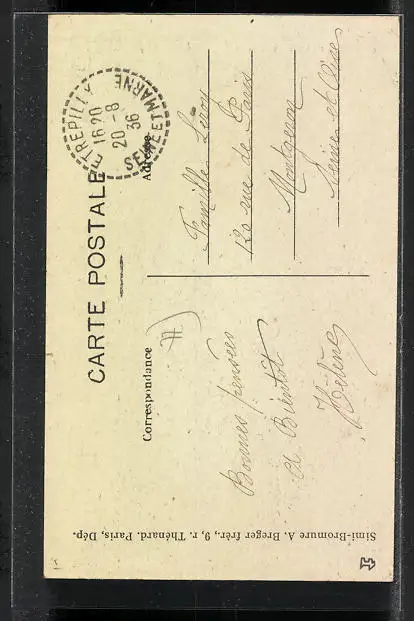 CARTE POSTALE
Correspondance
Adresse
TREPILLY
16 20
20 - 8
36
SEINE ET MARNE
Bonnes pensées
à Bientôt
Hélène
Famille
120 rue de Paris
Montgeron
Seine et Oise
Simi-Bromure A. Breger frèr., 9, r. Thénard. Paris, Dép.